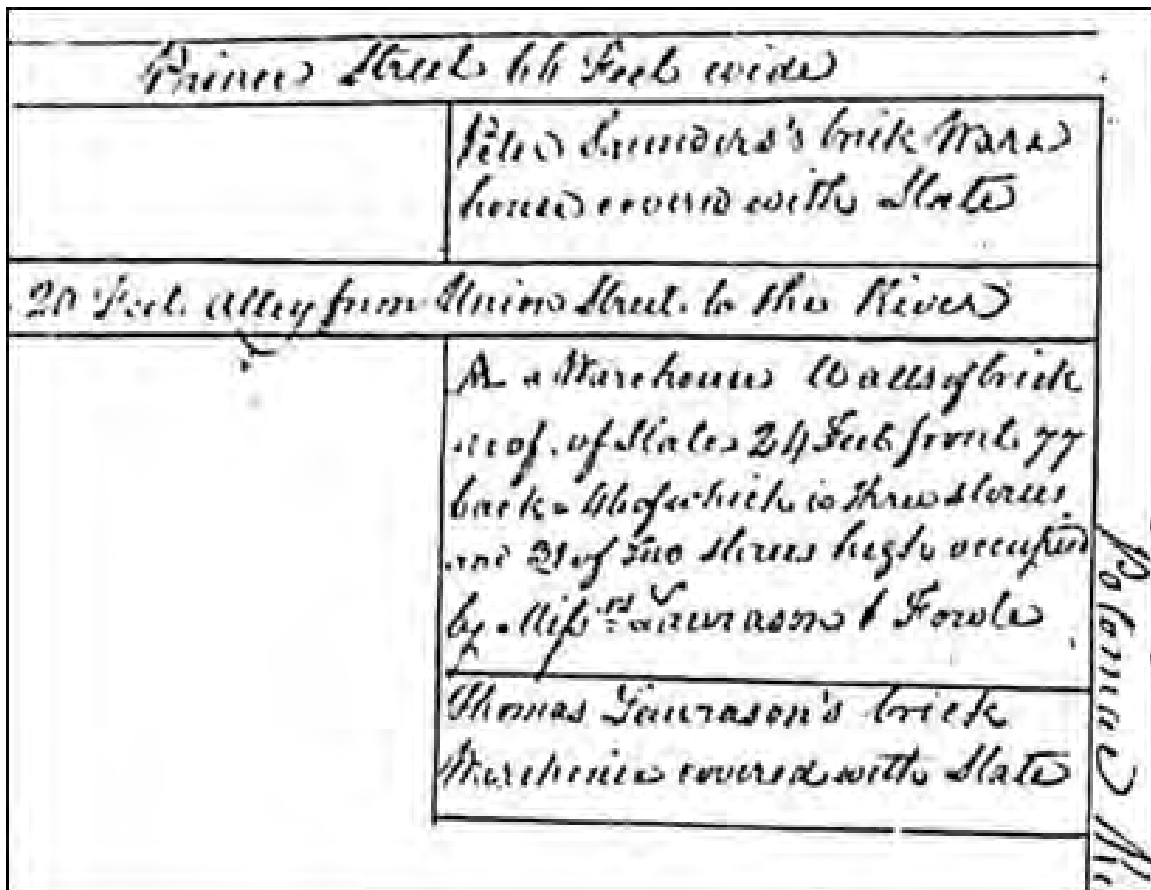 Prince Street 66 Feet wide
Peter Saunders's brick Ware
house covered with Slate
20 Feet Alley from Union Street to the River
A a Warehouse Walls of brick
roof of Slate 24 Feet front 77
back 46 of which is three stories
and 31 of two stories high occupied
by Mess.rs Lawrason & Fowle
Thomas Lawrason's brick
Warehouse covered with Slate
Potomac